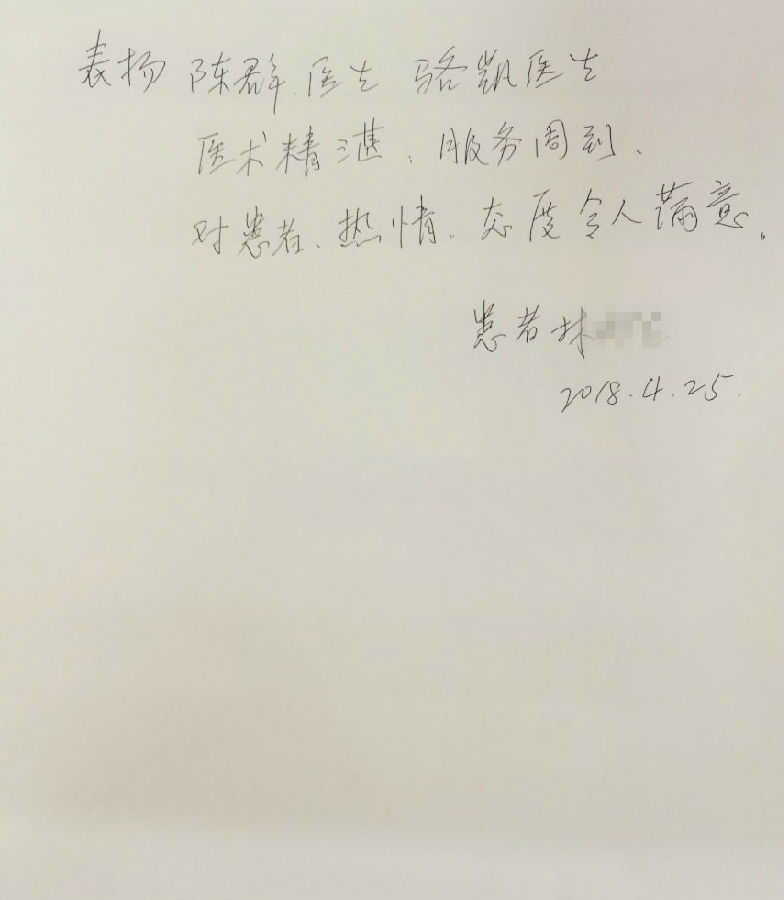 表扬 陈群 医生 骆凯医生
医术精湛、服务周到、
对患者、热情。态度令人满意。
患者林
2018.4.25.